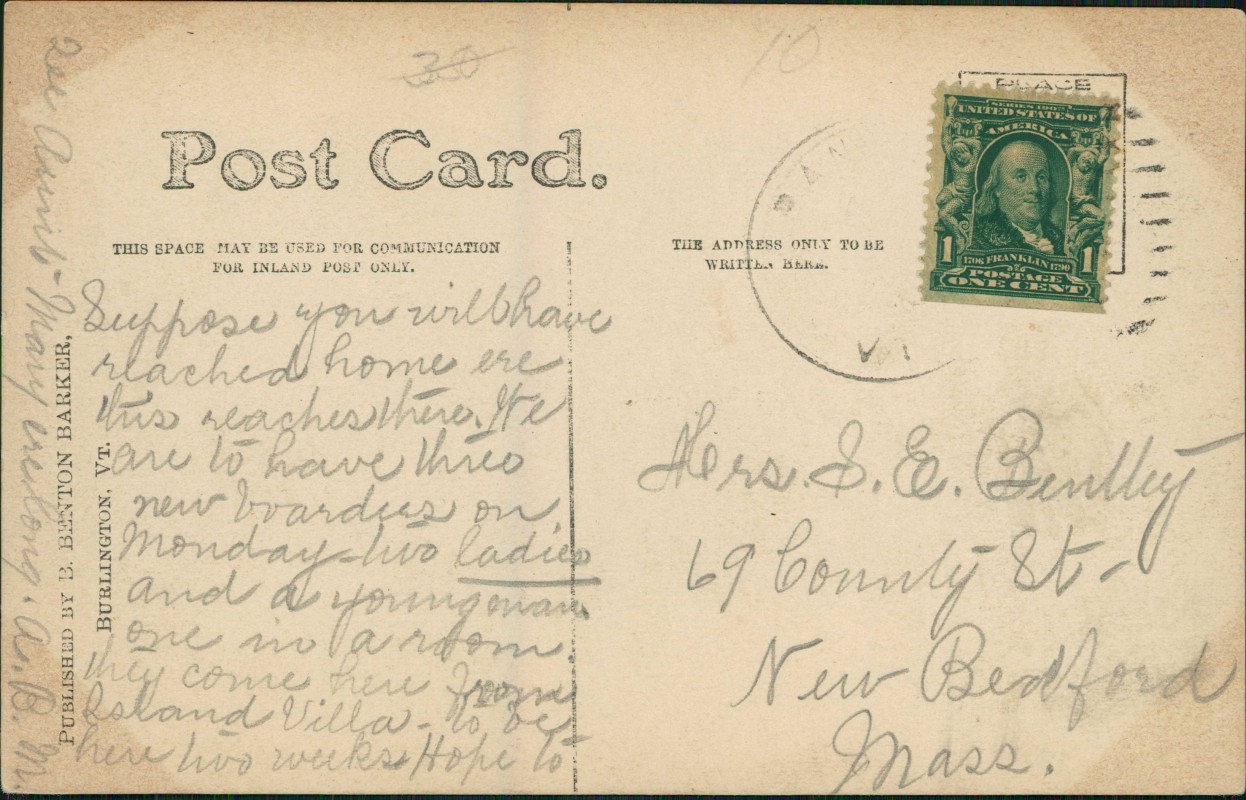 30
10
Post Card.
THIS SPACE MAY BE USED FOR COMMUNICATION
FOR INLAND POST ONLY.
THE ADDRESS ONLY TO BE
WRITTEN HERE.
PLACE
SERIES 1902
UNITED STATES OF
AMERICA
1 1
1706 FRANKLIN 1790
POSTAGE
ONE CENT
VT
Suppose you will have
reached home ere
this reaches there. We
are to have three
new boarders on
Monday - two ladies
and a young man
one in a room.
they come here from
Island Villa - to be
here two weeks Hope to
see Aunt Mary erelong. A. B. M.
PUBLISHED BY B. BENTON BARKER,
BURLINGTON, VT.
Mrs. S. E. Bentley
69 County St -
New Bedford
Mass.